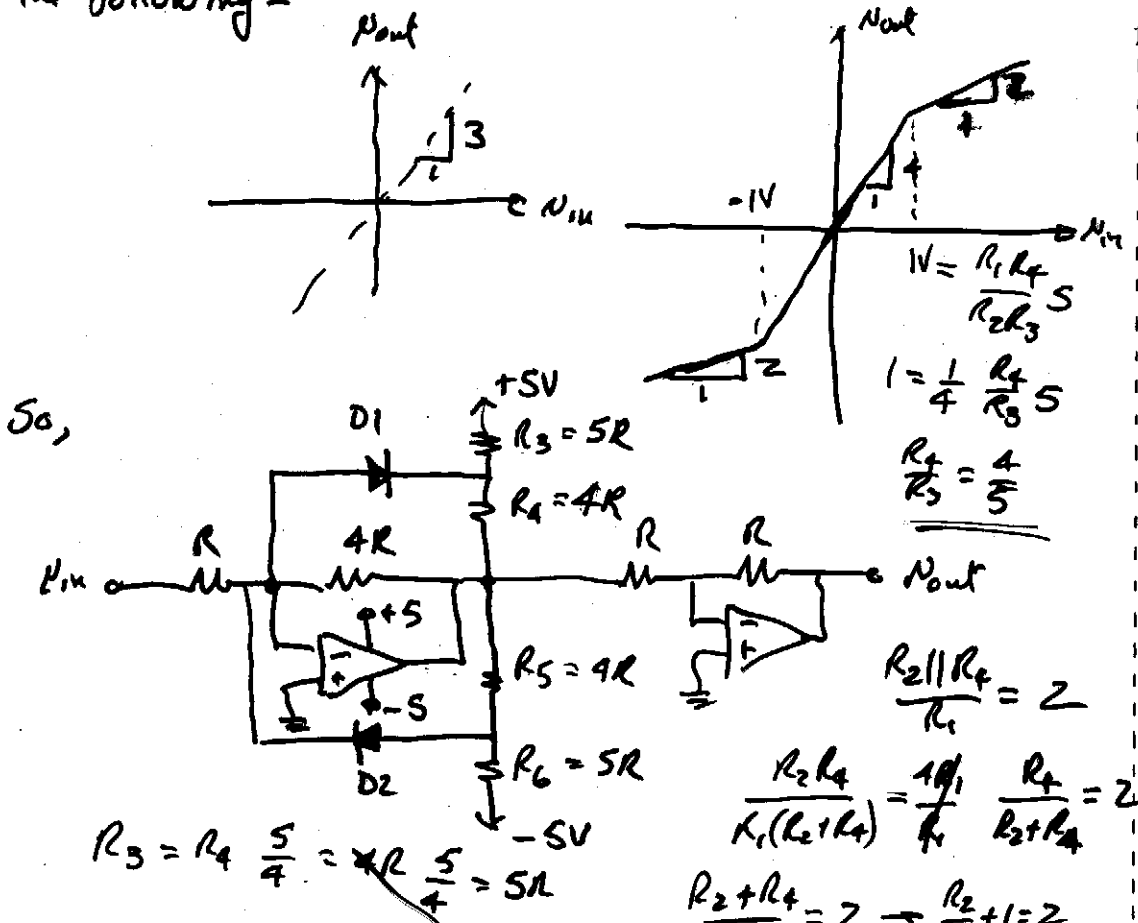 the following –
Nout
3
1
Nin
Nout
2
1
4
1
-1V
Nin
1V = R1R4 / R2R3 5
2
1
1 = 1/4 R4/R3 5
R4/R3 = 4/5
So,
+5V
D1
R3 = 5R
R4 = 4R
R
4R
R
R
Nin
Nout
+5
-5
R5 = 4R
D2
R6 = 5R
-5V
R2||R4 / R1 = 2
R2R4 / R1(R2+R4) = 4R1/R1 R4/R2+R4 = 2
R3 = R4 5/4 = 4R 5/4 = 5R
R2+R4 = 2 → R2 +1=2